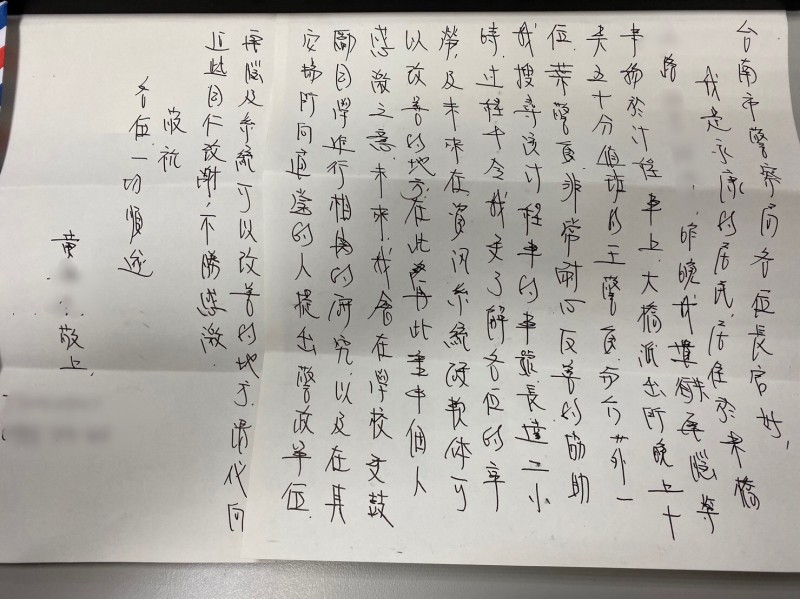 台南市警察局各位長官好,
我是永康的居民,居住於東橋
路 . 昨晚我遺失電腦等
事物於計程車上,大橋派出所晚上十
點五十分值班的王警員、另外一
位葉警員非常耐心友善的協助
我搜尋該計程車的車號長達二小
時,過程中令我更了解各位的辛
勞,及未來在資訊系統硬軟体可
以改善的地方,在此再此重申個人
感激之意.未來,我會在學校更鼓
勵同學進行相關的研究.以及在其
它場所向適當的人提出警政單位
電腦及系統可以改善的地方,請代向
這些同仁致謝,不勝感激.
敬祝
各位一切順遂
黃 敬上.